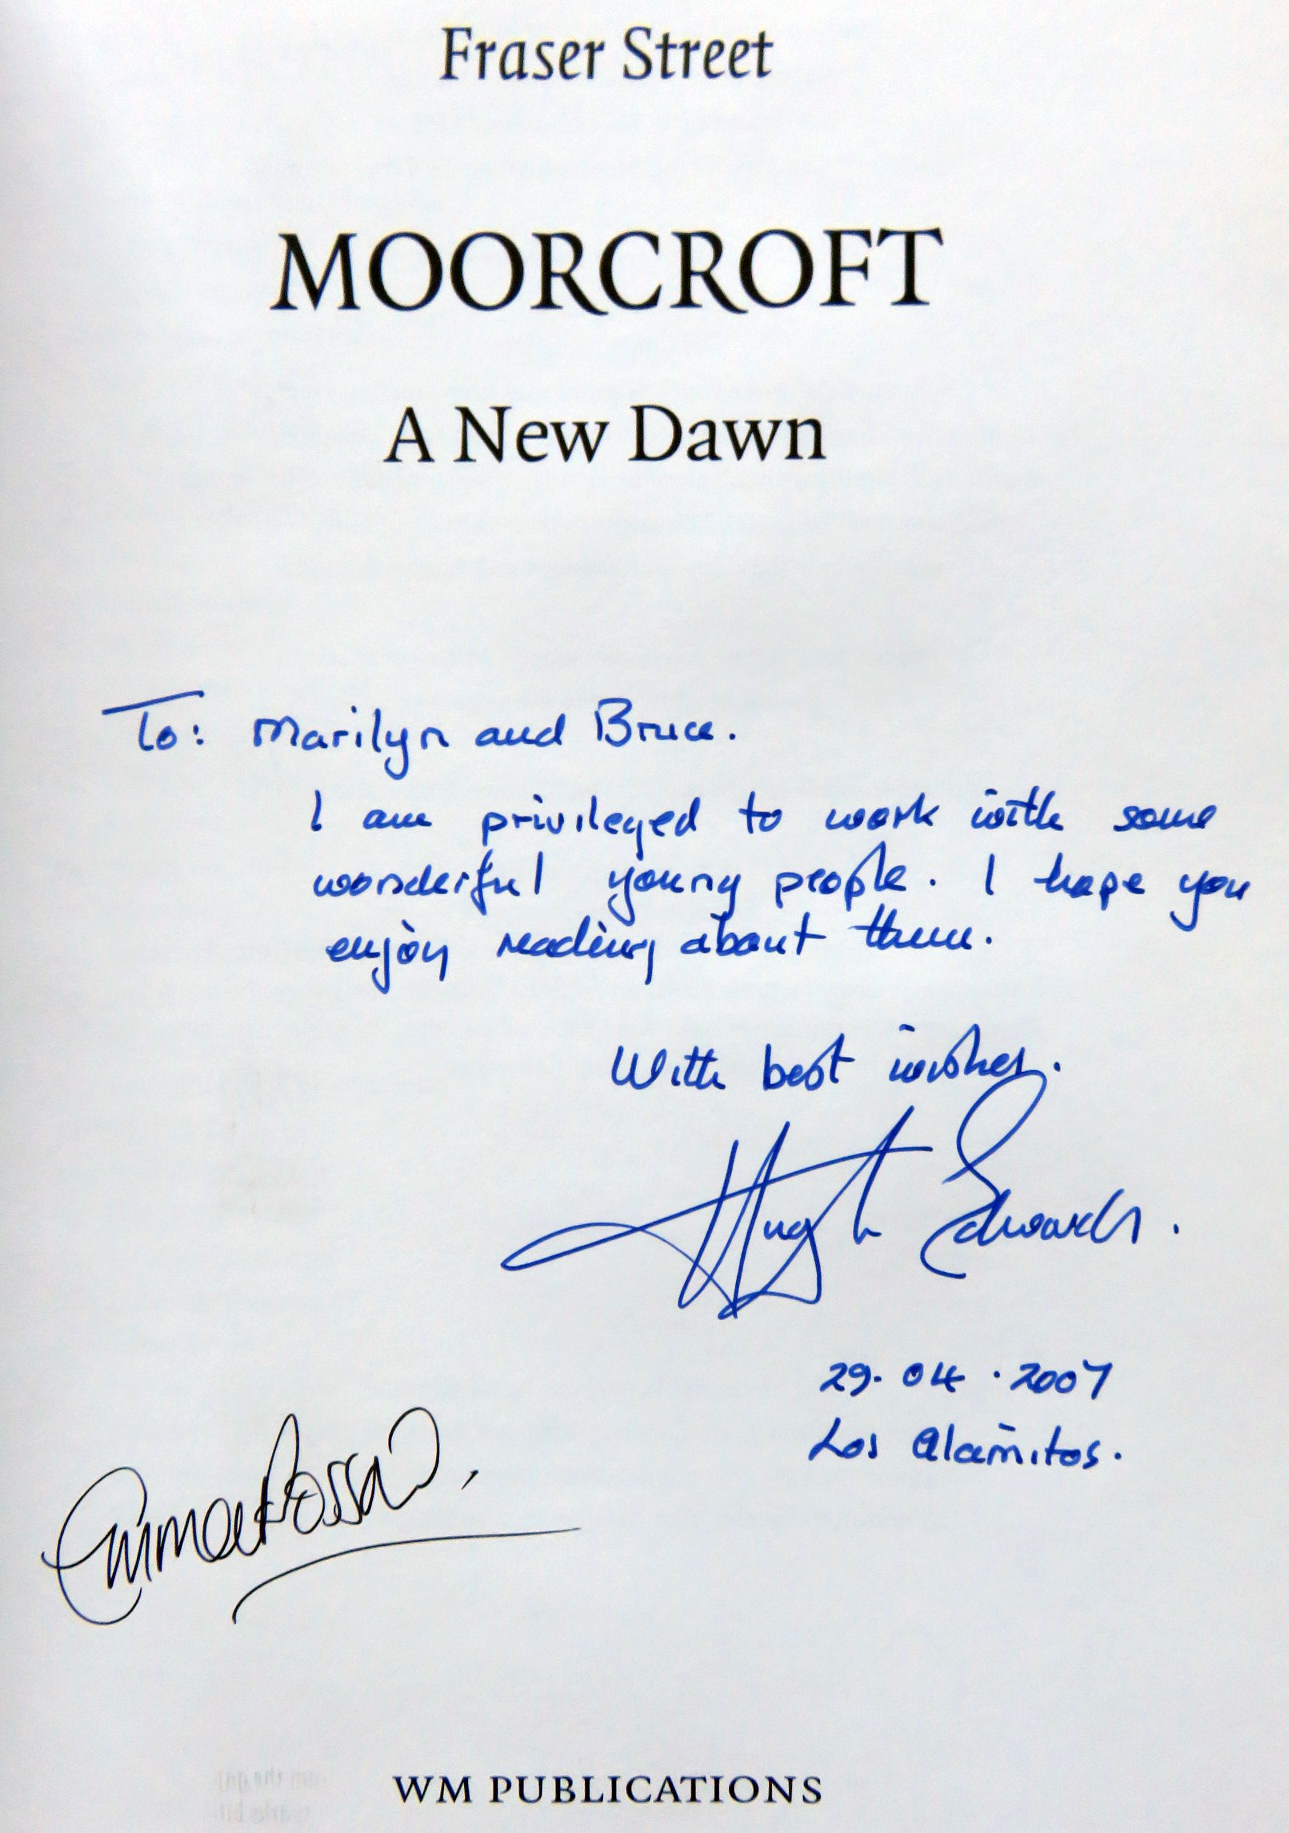 Fraser Street
MOORCROFT
A New Dawn
To: Marilyn and Bruce.
I am privileged to work with some
wonderful young people. I hope you
enjoy reading about them.
With best wishes.
Hugh Edwards.
29.04.2007
Los Alamitos.
Emma Bossons
WM PUBLICATIONS